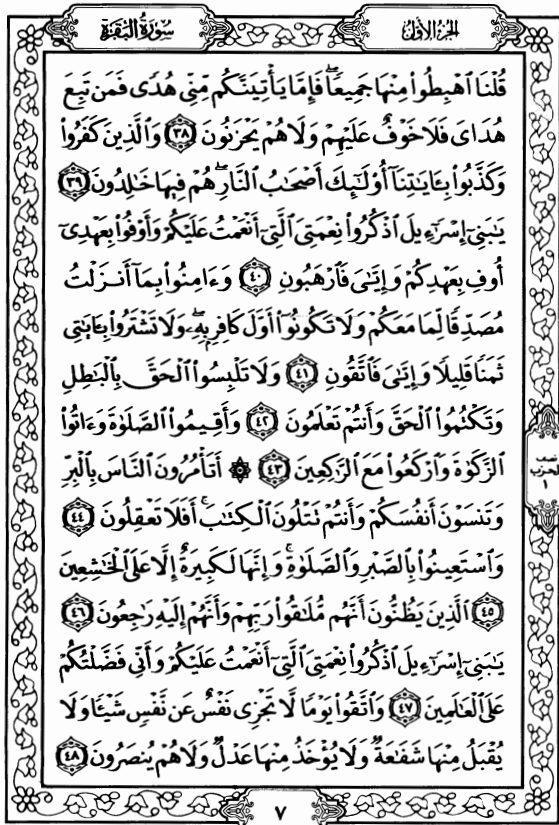 سُورَةُ البَقَرَةِ
الجُزءُ الأَوَّلُ
قُلْنَا ٱهْبِطُوا۟ مِنْهَا جَمِيعًۭا ۖ فَإِمَّا يَأْتِيَنَّكُم مِّنِّى هُدًۭى فَمَن تَبِعَ
هُدَاىَ فَلَا خَوْفٌ عَلَيْهِمْ وَلَا هُمْ يَحْزَنُونَ ٣٨ وَٱلَّذِينَ كَفَرُوا۟
وَكَذَّبُوا۟ بِـَٔايَـٰتِنَآ أُو۟لَـٰٓئِكَ أَصْحَـٰبُ ٱلنَّارِ ۖ هُمْ فِيهَا خَـٰلِدُونَ ٣٩
يَـٰبَنِىٓ إِسْرَٰٓءِيلَ ٱذْكُرُوا۟ نِعْمَتِىَ ٱلَّتِىٓ أَنْعَمْتُ عَلَيْكُمْ وَأَوْفُوا۟ بِعَهْدِىٓ
أُوفِ بِعَهْدِكُمْ وَإِيَّـٰىَ فَٱرْهَبُونِ ٤٠ وَءَامِنُوا۟ بِمَآ أَنزَلْتُ
مُصَدِّقًۭا لِّمَا مَعَكُمْ وَلَا تَكُونُوٓا۟ أَوَّلَ كَافِرٍۭ بِهِۦ ۖ وَلَا تَشْتَرُوا۟ بِـَٔايَـٰتِى
ثَمَنًۭا قَلِيلًۭا وَإِيَّـٰىَ فَٱتَّقُونِ ٤١ وَلَا تَلْبِسُوا۟ ٱلْحَقَّ بِٱلْبَـٰطِلِ
وَتَكْتُمُوا۟ ٱلْحَقَّ وَأَنتُمْ تَعْلَمُونَ ٤٢ وَأَقِيمُوا۟ ٱلصَّلَوٰةَ وَءَاتُوا۟
ٱلزَّكَوٰةَ وَٱرْكَعُوا۟ مَعَ ٱلرَّٰكِعِينَ ٤٣ ۞ أَتَأْمُرُونَ ٱلنَّاسَ بِٱلْبِرِّ
وَتَنسَوْنَ أَنفُسَكُمْ وَأَنتُمْ تَتْلُونَ ٱلْكِتَـٰبَ ۚ أَفَلَا تَعْقِلُونَ ٤٤
وَٱسْتَعِينُوا۟ بِٱلصَّبْرِ وَٱلصَّلَوٰةِ ۚ وَإِنَّهَا لَكَبِيرَةٌ إِلَّا عَلَى ٱلْخَـٰشِعِينَ
٤٥ ٱلَّذِينَ يَظُنُّونَ أَنَّهُم مُّلَـٰقُوا۟ رَبِّهِمْ وَأَنَّهُمْ إِلَيْهِ رَٰجِعُونَ ٤٦
يَـٰبَنِىٓ إِسْرَٰٓءِيلَ ٱذْكُرُوا۟ نِعْمَتِىَ ٱلَّتِىٓ أَنْعَمْتُ عَلَيْكُمْ وَأَنِّى فَضَّلْتُكُمْ
عَلَى ٱلْعَـٰلَمِينَ ٤٧ وَٱتَّقُوا۟ يَوْمًۭا لَّا تَجْزِى نَفْسٌ عَن نَّفْسٍۢ شَيْـًۭٔا وَلَا
يُقْبَلُ مِنْهَا شَفَـٰعَةٌۭ وَلَا يُؤْخَذُ مِنْهَا عَدْلٌۭ وَلَا هُمْ يُنصَرُونَ ٤٨
نصف
الحزب
١
٧